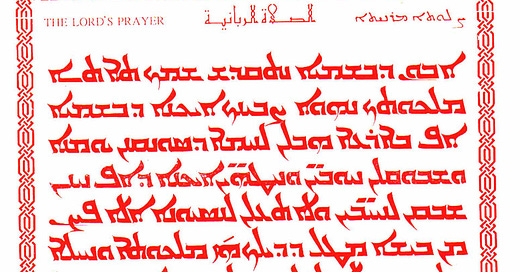 THE LORD'S PRAYER الصلاة الربانية ܨܠܘܬܐ ܡܪܢܝܬܐ
ܐܒܘܢ ܕܒܫܡܝܐ ܢܬܩܕܫ ܫܡܟ ܬܐܬܐ
ܡܠܟܘܬܟ ܢܗܘܐ ܨܒܝܢܟ ܐܝܟܢܐ ܕܒܫܡܝܐ
ܐܦ ܒܐܪܥܐ ܗܒ ܠܢ ܠܚܡܐ ܕܣܘܢܩܢܢ ܝܘܡܢܐ
ܘܫܒܘܩ ܠܢ ܚܘܒܝ̈ܢ ܘܚܛܗ̈ܝܢ ܐܝܟܢܐ ܕܐܦ ܚܢܢ
ܫܒܩܢ ܠܚܝ̈ܒܝܢ ܘܠܐ ܬܥܠܢ ܠܢܣܝܘܢܐ ܐܠܐ ܦܨܢ
ܡܢ ܒܝܫܐ ܡܛܠ ܕܕܝܠܟ ܗܝ ܡܠܟܘܬܐ ܘܚܝܠܐ